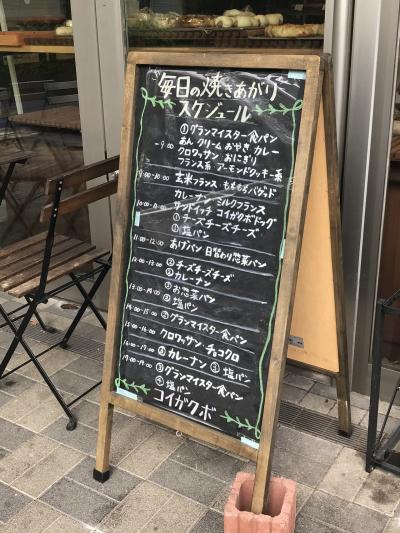 毎日の焼きあがり
スケジュール
①グランマイスター食パン
~9:00 あん クリーム おやき カレー
クロワッサン おにぎり
フランス系 アーモンドクッキー系
9:00-10:00 玄米フランス もちもちバゲット
カレーナン ミルクフランス
10:00-11:00 サンドイッチ コイガクボドッグ
①チーズチーズチーズ
①塩パン
11:00-12:00 あげパン 日替わり惣菜パン
12:00-13:00 ②チーズチーズチーズ
②カレーナン
13:00-14:00 ②お惣菜パン
②塩パン
14:00-15:00 ②グランマイスター食パン
15:00-16:00 クロワッサン・チョコクロ
16:00-17:00 ③カレーナン ③塩パン
17:00-19:00 ③グランマイスター食パン
④塩パン
コイガクボ